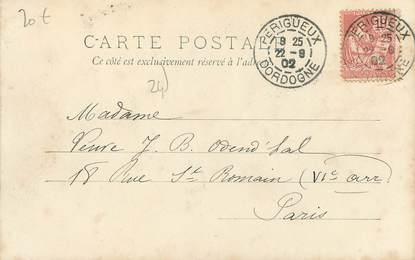 20 t
CARTE POSTALE
Ce côté est exclusivement réservé à l'adresse
PÉRIGUEUX
9 25
22 - 9
02
DORDOGNE
PÉRIGUEUX
25
9
02
NE
24)
Madame
Veuve J. B. Odend'hal
18 Rue St. Romain (VIe arr
Paris